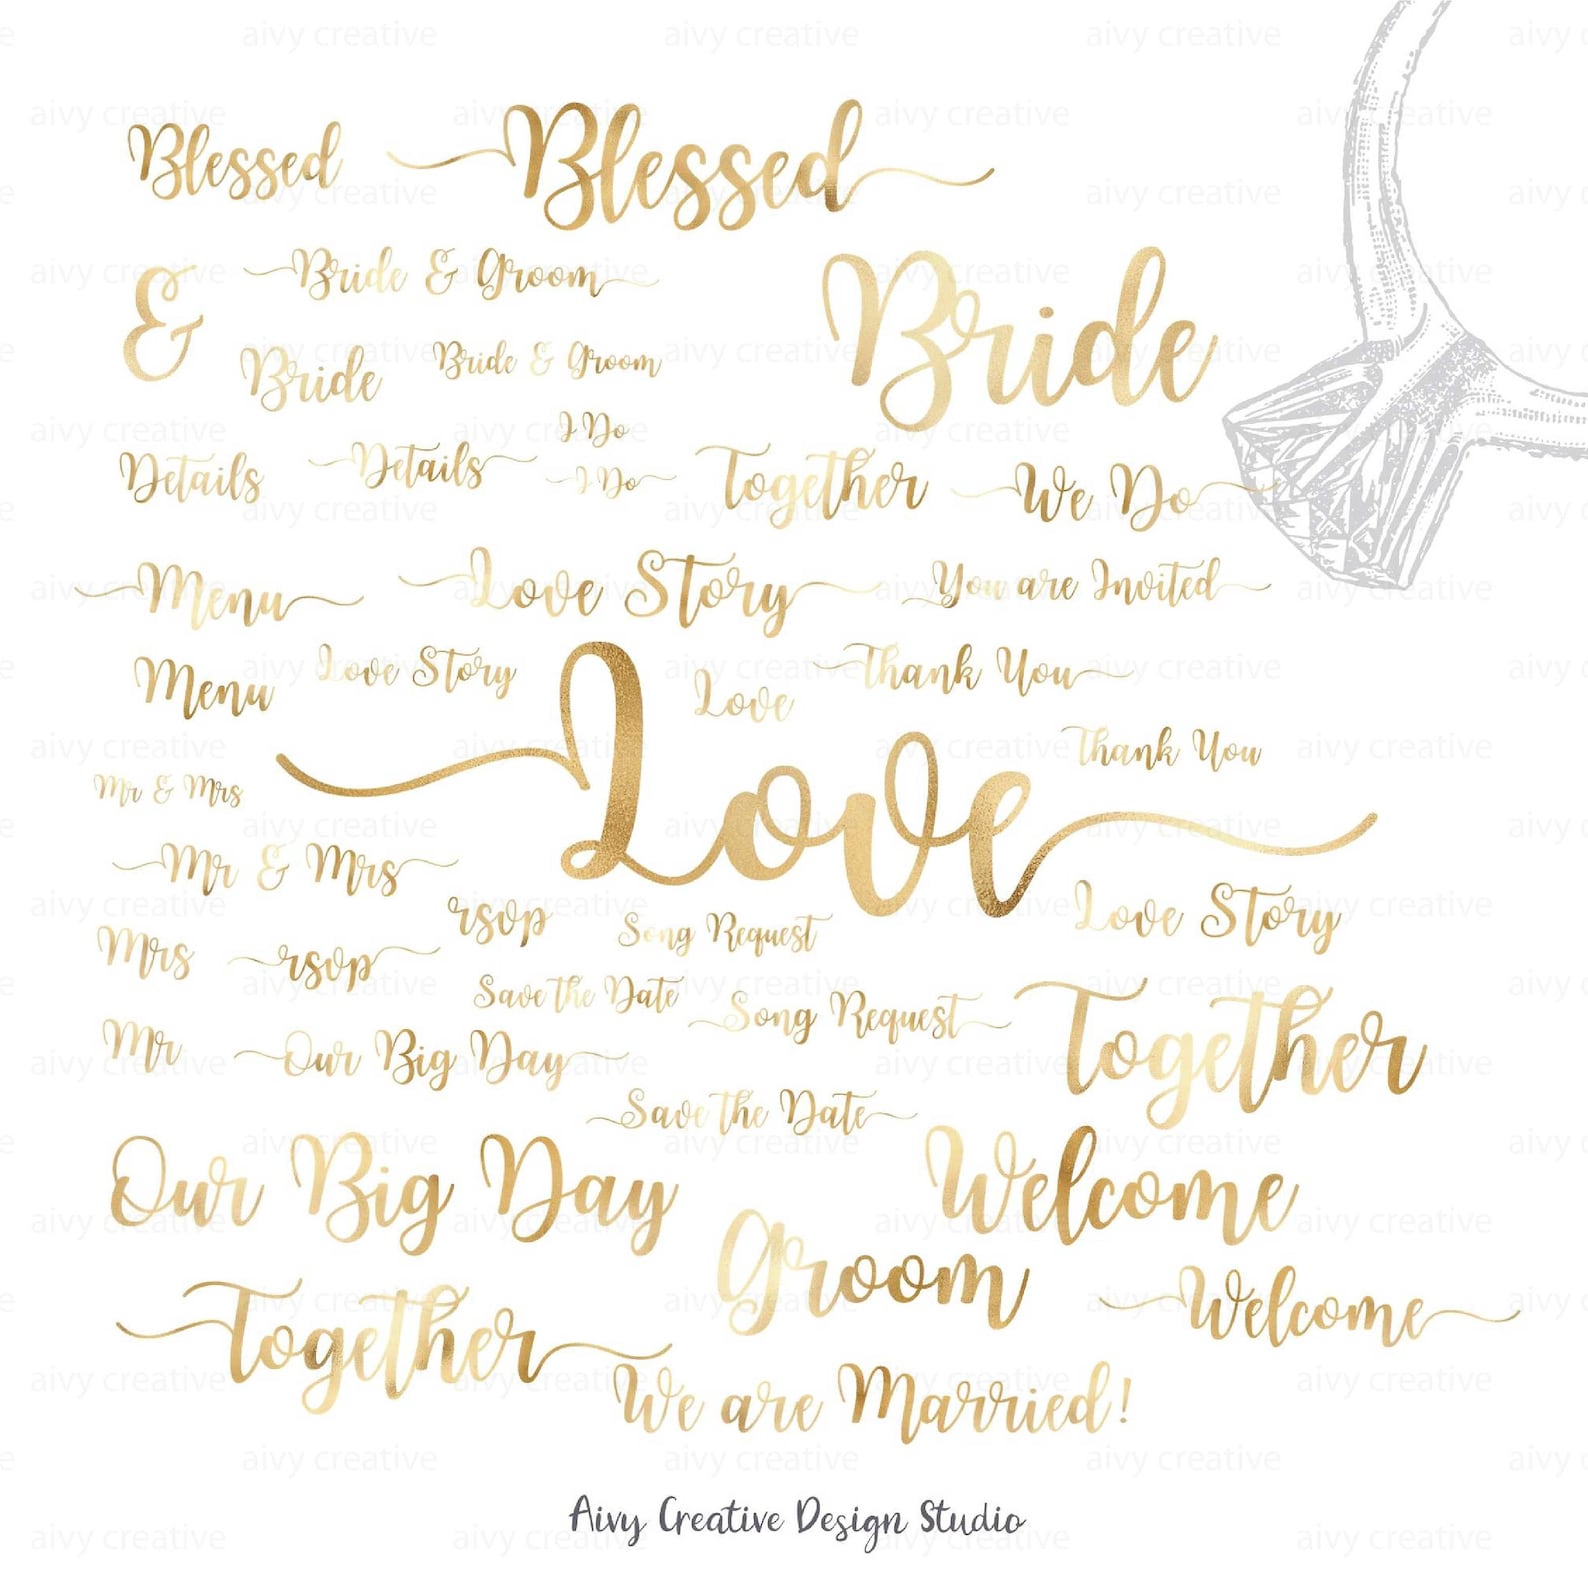 Blessed
Blessed
&
Bride & Groom
Bride
Bride
Bride & Groom
I Do
Details
Details
I Do
Together
We Do
Menu
Love Story
You are Invited
Menu
Love Story
Love
Love
Thank You
Thank You
Mr & Mrs
Mr & Mrs
rsvp
Song Request
Love Story
Mrs
rsvp
Save the Date
Song Request
Together
Mr
Our Big Day
Save the Date
Our Big Day
Welcome
Groom
Together
Welcome
We are Married!
Aivy Creative Design Studio
aivy creative